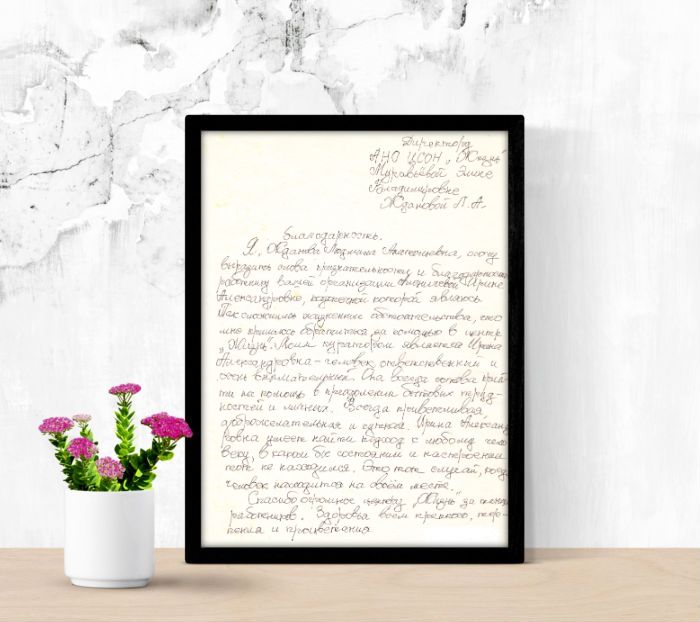 Директора
АНО ЦСОН „Жизнь"
Муравьёвой Элине
Владимировне
Ждановой Л.А.
Благодарность.
Я, Жданова Людмила Анатольевна, хочу
выразить слова признательности и благодарности
работнику вашей организации Ирине
Александровне, которой являюсь.
Так сложились жизненные обстоятельства, что
мне пришлось обратиться за помощью в центр
„Жизнь". Моим куратором является Ирина
Александровна - человек ответственный и
очень внимательный. Она всегда готова прий-
ти на помощь в преодолении бытовых труд-
ностей и личных. Всегда приветливая,
доброжелательная и Ирина Александ-
ровна умеет найти подход к любому чело-
веку, в каком бы состоянии и настроении
тот не находился. Это тот случай, когда
человек находится на своём месте.
Спасибо огромное центру „Жизнь" за таких
работников. Здоровья всем крепкого, терпе-
ния и процветания